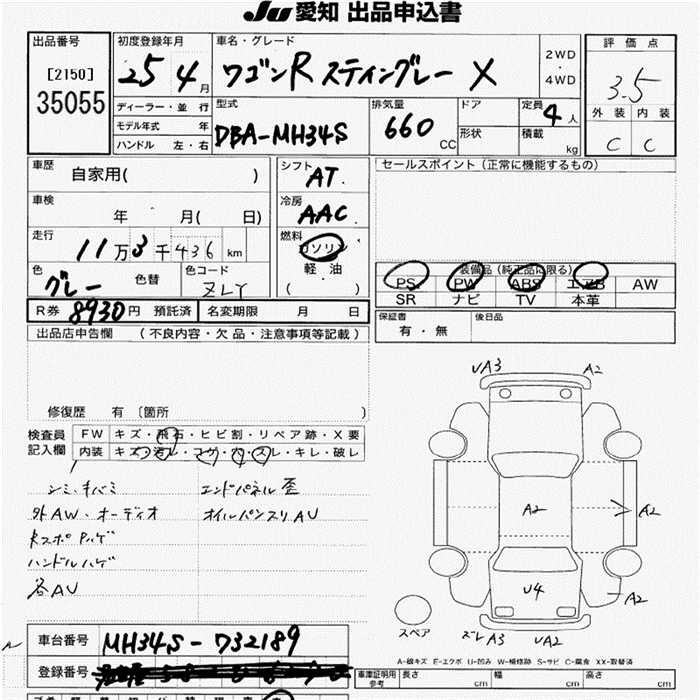 JU 愛知 出品申込書
出品番号
[2150]
35055
初度登録年月
25 4 月
ディーラー・並 行
モデル年式 年
ハンドル 左・右
車名・グレード
ワゴンR スティングレー X
2WD
・
4WD
型式
DBA-MH34S
排気量
660 CC
ドア
形状
定員
4 人
積載
kg
評 価 点
3.5
外 装 内 装
C C
車歴
自家用( )
車検
年 月( 日)
走行
11万3千436 km
色
グレー 色替
色コード
ZLY
シフト
AT.
冷房
AAC.
燃料
ガソリン
軽 油
( )
セールスポイント(正常に機能するもの)
装備品(純正品に限る)
PS PW ABS エアB AW
SR ナビ TV 本革
R券 8930円 預託済 名変期限 月 日
保証書
有・無
後日品
出品店申告欄 (不良内容・欠品・注意事項等記載)
修復歴 有 〔箇所 )
検査員
記入欄
FW キズ・飛石・ヒビ割・リペア跡・X要
内装 キズ・汚レ・コゲ・穴・スレ・キレ・破レ
シミ・キバミ エンドパネル歪
外AW・オーディオ オイルパンスリAU
ハンドルハゲ
各AU
UA3 A2
A2
A2
U4
A2
スペア
ズレA3 UA2
A-線キズ E-エクボ U-凹み W-補修跡 S-サビ C-腐食 XX-取替済
車台番号 MH34S-732189
登録番号
車庫証明用
参考
長さ cm 幅 cm 高さ cm